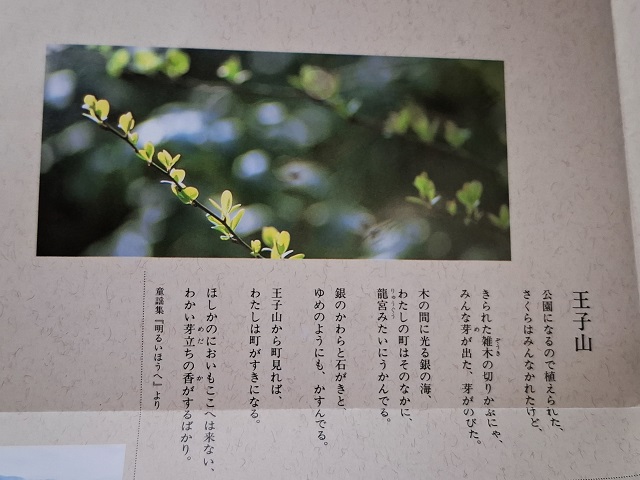 王子山
公園になるので植えられた、
さくらはみんなかれたけど、
きられた雑木の切りかぶにゃ、
みんな芽が出た、芽がのびた。
木の間に光る銀の海、
わたしの町はそのなかに、
龍宮みたいにうかんでる。
銀のかわらと石がきと、
ゆめのようにも、かすんでる。
王子山から町見れば、
わたしは町がすきになる。
ほしかのにおいもここへは来ない、
わかい芽立ちの香がするばかり。
童謡集『明るいほうへ』より